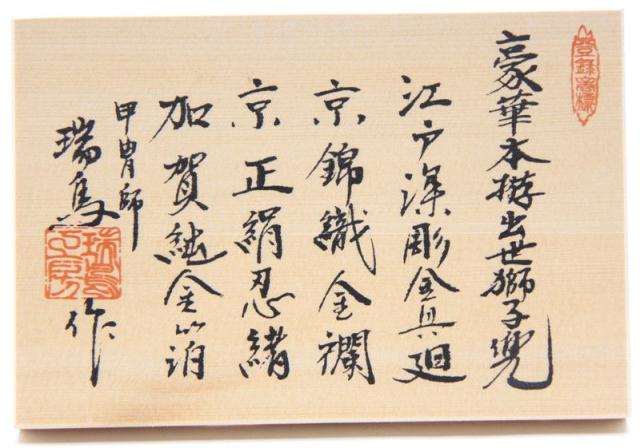 登録商標
豪華本拵出世獅子兜
江戸深彫金具廻
京錦織金襴
京正絹忍緒
加賀純金箔
甲冑師
瑞鳥
作